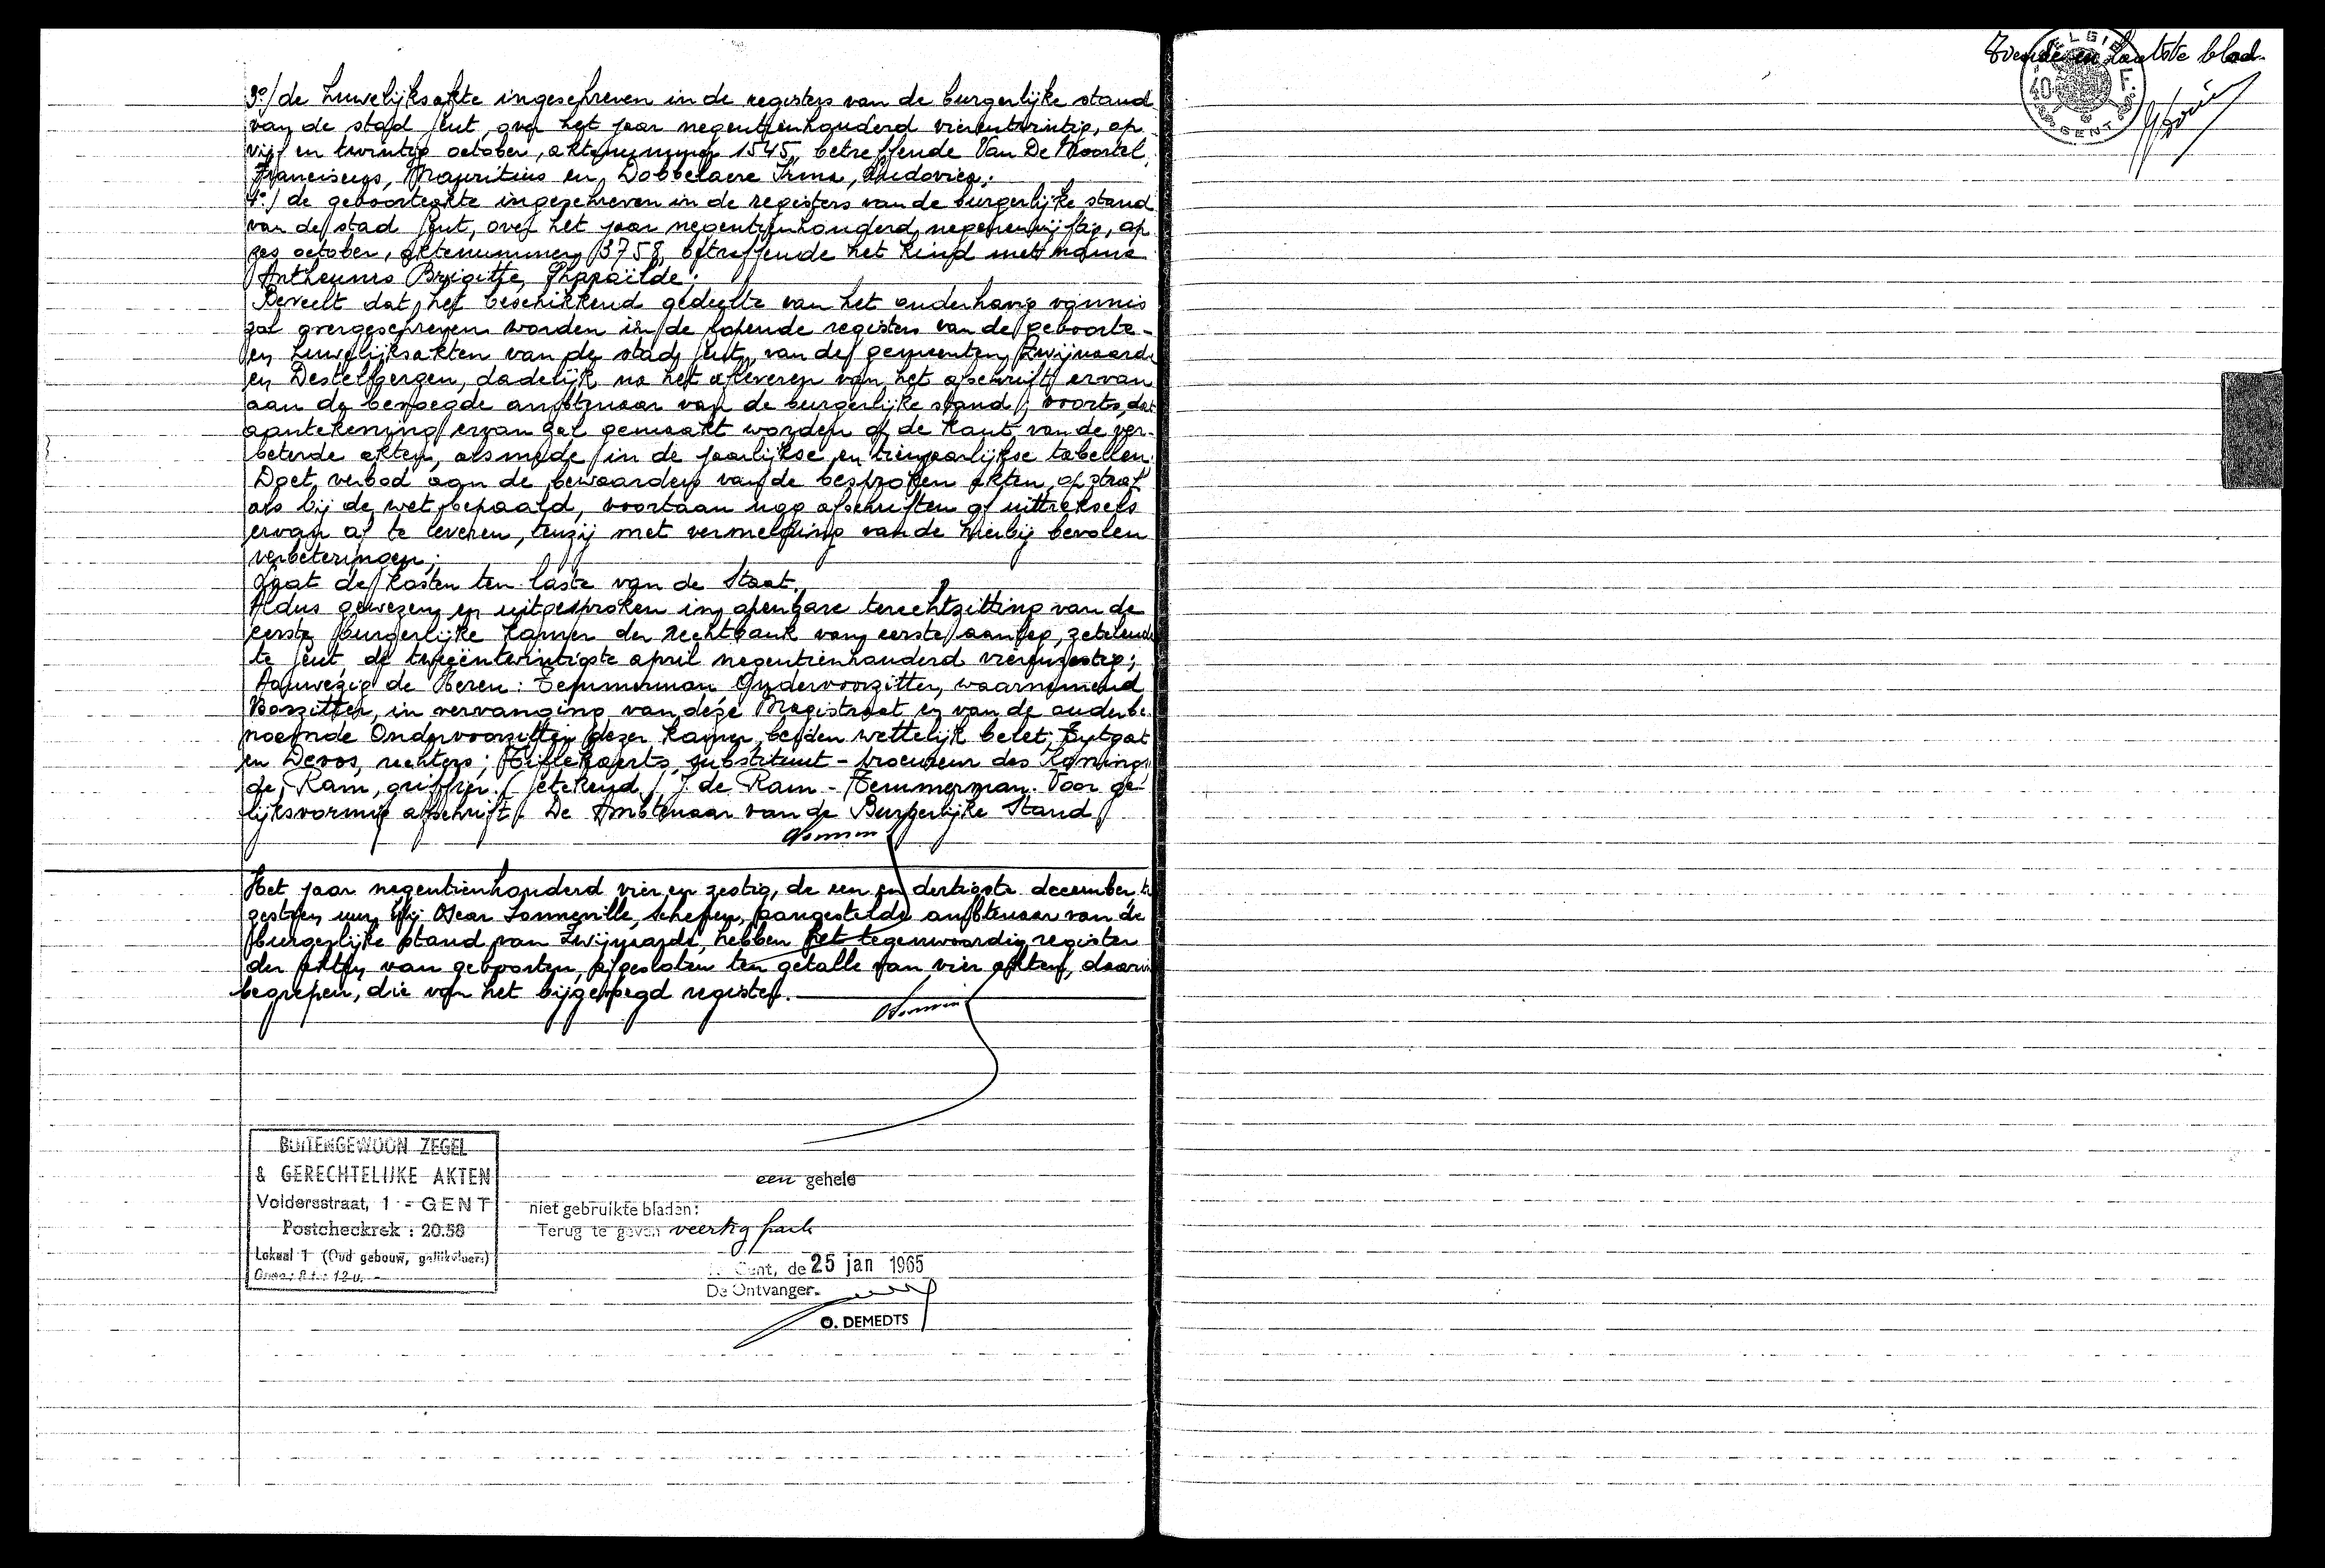 3°/ de huwelijksakte ingeschreven in de registers van de burgerlijke stand
van de stad Gent, over het jaar negentienhonderd vierentwintig, op
vijf en twintig october, aktenummer 1545, betreffende Van De Moortel,
Franciscus, Mauritius en, Dobbelaere Irma, Ludovica;
4°/ de geboorteakte ingeschreven in de registers van de burgerlijke stand
van de stad Gent, over het jaar negentienhonderd negenenvijftig, op
zes october, aktenummer 3758, betreffende het kind met name
Antheunis Brigitte, Pharaïlde;
Beveelt dat het beschikkend gedeelte van het onderhavig vonnis
zal overgeschreven worden in de lopende registers van de geboorte-
en huwelijksakten van de stad Gent, van de gemeenten Zwijnaarde
en Destelbergen, dadelijk na het afleveren van het afschrift ervan
aan de bevoegde ambtenaar van de burgerlijke stand; voorts, dat
aantekening ervan zal gemaakt worden op de kant van de ver-
beterde akten, alsmede in de jaarlijkse en tienjaarlijkse tabellen.
Doet verbod aan de bewaarders van de besproken akten, op straf
als bij de wet bepaald, voortaan nog afschriften of uittreksels
ervan af te leveren, tenzij met vermelding van de hierbij bevolen
verbeteringen;
Laat de kosten ten laste van de Staat.
Aldus gewezen en uitgesproken in openbare terechtzitting van de
eerste burgerlijke kamer der rechtbank van eerste aanleg, zetelende
te Gent, de tweeëntwintigste april negentienhonderd vierenzestig;
Aanwezig de Heren: Temmerman Ondervoorzitter, waarnemend
Voorzitter, in vervanging van deze Magistraat en van de ouderbe-
noemde Ondervoorzitter dezer kamer, beiden wettelijk belet; Eytgat
en Devos, rechters; substituut - procureur des Konings
de Ram, griffier. (Getekend) J. de Ram - Temmerman. Voor ge-
lijksvormig afschrift. De Ambtenaar van de Burgerlijke Stand
Het jaar negentienhonderd vier en zestig, de een en dertigste december, te
zestien uur, Wij Oscar Lonneville, schepen, aangestelde ambtenaar van de
burgerlijke stand van Zwijnaarde, hebben het tegenwoordig register
der akten van geboorten, afgesloten ten getalle van vier akten, daarin
begrepen, die van het bijgevoegd register.
BUITENGEWOON ZEGEL
& GERECHTELIJKE AKTEN
Voldersstraat, 1 - GENT
Postcheckrek : 20.58
Lokaal 1 (Oud gebouw, gelijkvloers)
een gehele
niet gebruikte bladen:
Terug te geven veertig frank
Gent, de 25 jan 1965
De Ontvanger.
O. DEMEDTS
Tweede en laatste blad.
BELGIE
40 F.
GENT